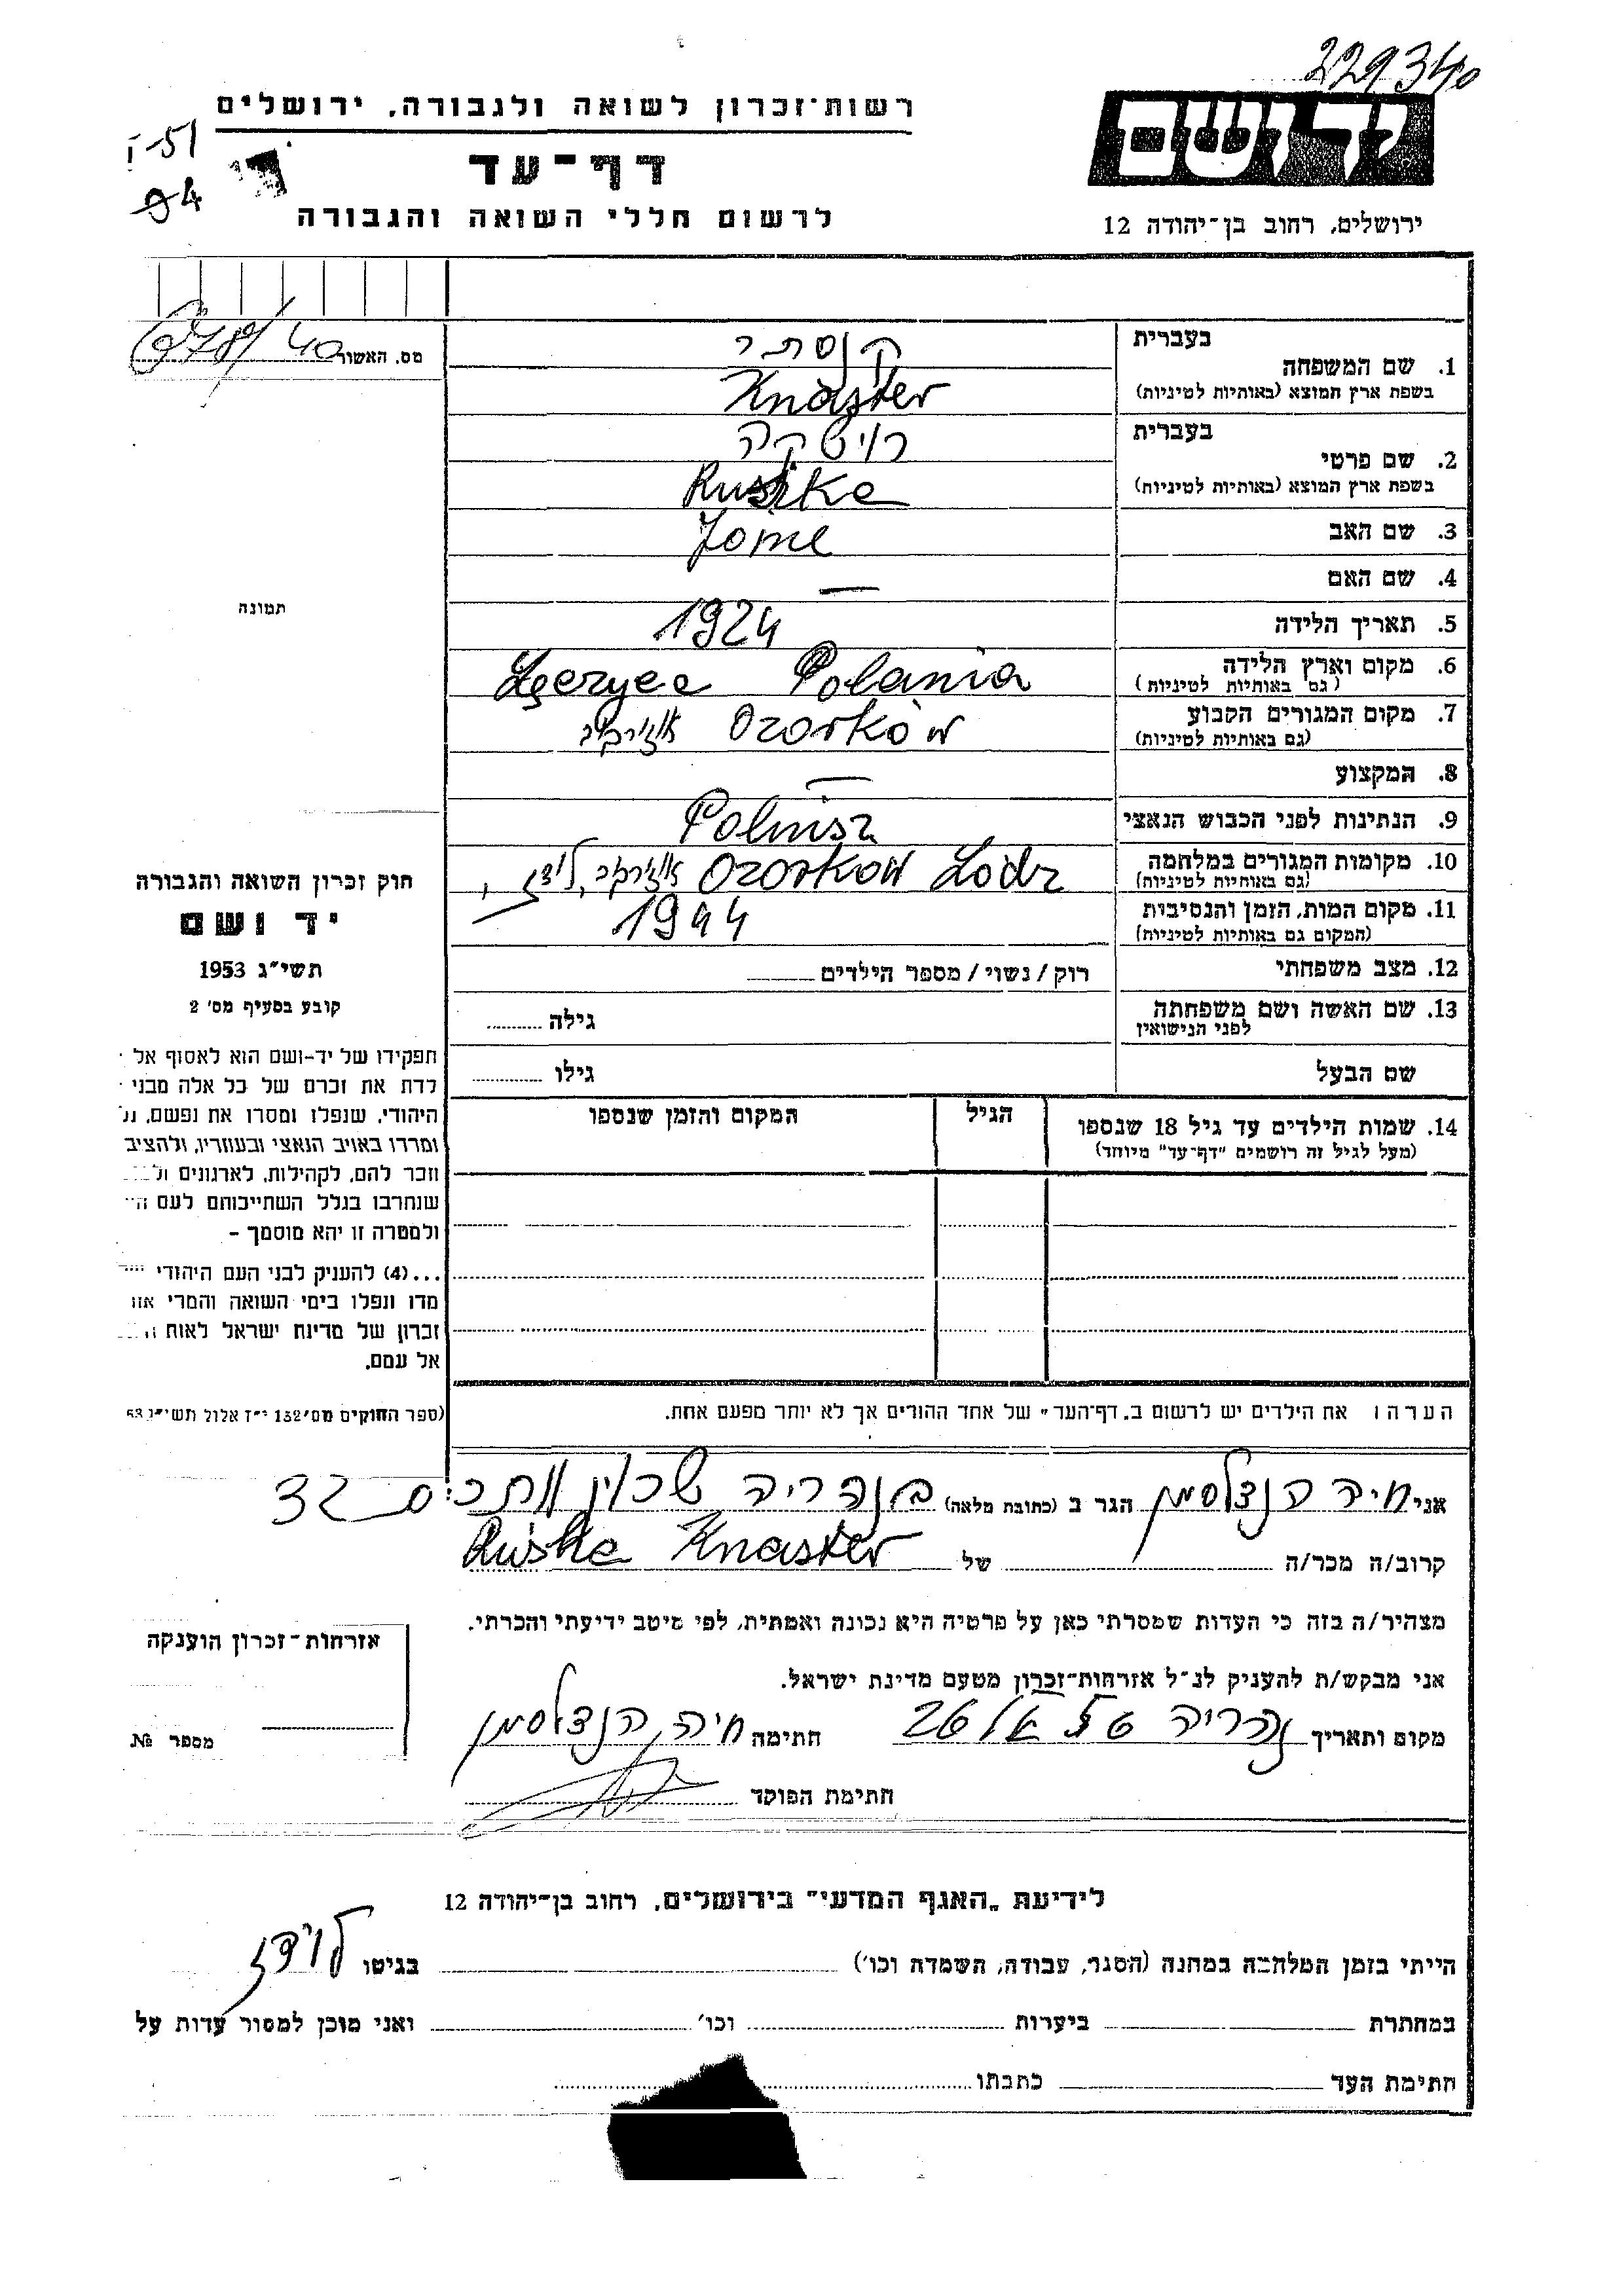 229340
רשות־זכרון לשואה ולגבורה, ירושלים
יד ושם
דף־עד
לרשום חללי השואה והגבורה
ירושלים, רחוב בן־יהודה 12
מס. האשור
1. שם המשפחה
בעברית
קנסתר
בשפת ארץ המוצא (באותיות לטיניות)
Knaster
2. שם פרטי
בעברית
רוישקה
בשפת ארץ המוצא (באותיות לטיניות)
3. שם האב
4. שם האם —
5. תאריך הלידה 1924
6. מקום וארץ הלידה
(גם באותיות לטיניות)
Polania
7. מקום המגורים הקבוע
(גם באותיות לטיניות)
Ozorków
8. המקצוע —
9. הנתינות לפני הכבוש הנאצי
10. מקומות המגורים במלחמה
(גם באותיות לטיניות)
Ozorkow Lodz
11. מקום המות, הזמן והנסיבות
(המקום גם באותיות לטיניות)
1944
12. מצב משפחתי
רוק / נשוי / מספר הילדים
13. שם האשה ושם משפחתה
לפני הנישואין
גילה
שם הבעל
גילו
14. שמות הילדים עד גיל 18 שנספו
(מעל לגיל זה רושמים "דף־עד" מיוחד)
הגיל
המקום והזמן שנספו
תמונה
חוק זכרון השואה והגבורה
יד ושם
תשי״ג 1953
קובע בסעיף מס׳ 2
תפקידו של יד-ושם הוא לאסוף אל
לדת את זכרם של כל אלה מבני
היהודי, שנפלו ומסרו את נפשם,
ומרדו באויב הנאצי ובעוזריו, ולהציב
וזכר להם, לקהילות, לארגונים
שנחרבו בגלל השתייכותם לעם
ולמטרה זו יהא מוסמך -
...(4) להעניק לבני העם היהודי
מדו ונפלו בימי השואה והמרי
זכרון של מדינת ישראל לאות
אל עמם.
(ספר החוקים מס׳ 132 י״ז אלול תשי״ג 53
הערה: את הילדים יש לרשום ב„דף־העד״ של אחד ההורים אך לא יותר מפעם אחת.
אני חיה הנצלסמן הגר ב (כתובת מלאה) בנהריה שכון ותיקים 32
קרוב/ה מכר/ה של Ruśka Knaster
מצהיר/ה בזה כי העדות שמסרתי כאן על פרטיה היא נכונה ואמתית, לפי מיטב ידיעתי והכרתי.
אני מבקש/ת להעניק לנ״ל אזרחות־זכרון מטעם מדינת ישראל.
מקום ותאריך נהריה
חתימה חיה הנצלסמן
חתימת הפוקד
אזרחות־זכרון הוענקה
מספר №
לידיעת „האגף המדעי״ בירושלים, רחוב בן־יהודה 12
הייתי בזמן המלחמה במחנה (הסגר, עבודה, השמדה וכו׳) בגיטו לודז
במחתרת ביערות וכו׳ ואני מוכן למסור עדות על
חתימת העד כתבתו